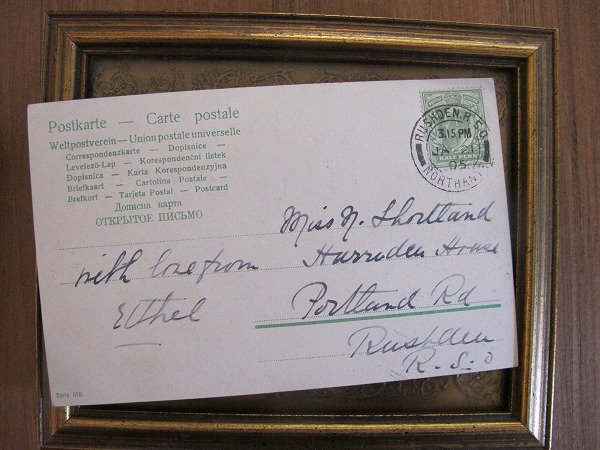 Postkarte — Carte postale
Weltpostverein — Union postale universelle
Correspondenzkarte — Dopisnice —
Levelező-Lap — Korespondenční listek
Dopisnica — Karta Korespondenzyjna
Briefkaart — Cartolina Postale —
Brefkort — Tarjeta Postal — Postcard
Дописна карта
ОТКРЫТОЕ ПИСЬМО
RUSHDEN.R.S.O.
3.15 PM
21
NORTHANTS
HALF PENNY
Miss N. Shortland
Harrden House
Portland Rd
Rushden
R. S. O
with love from
Ethel
Serie 319.